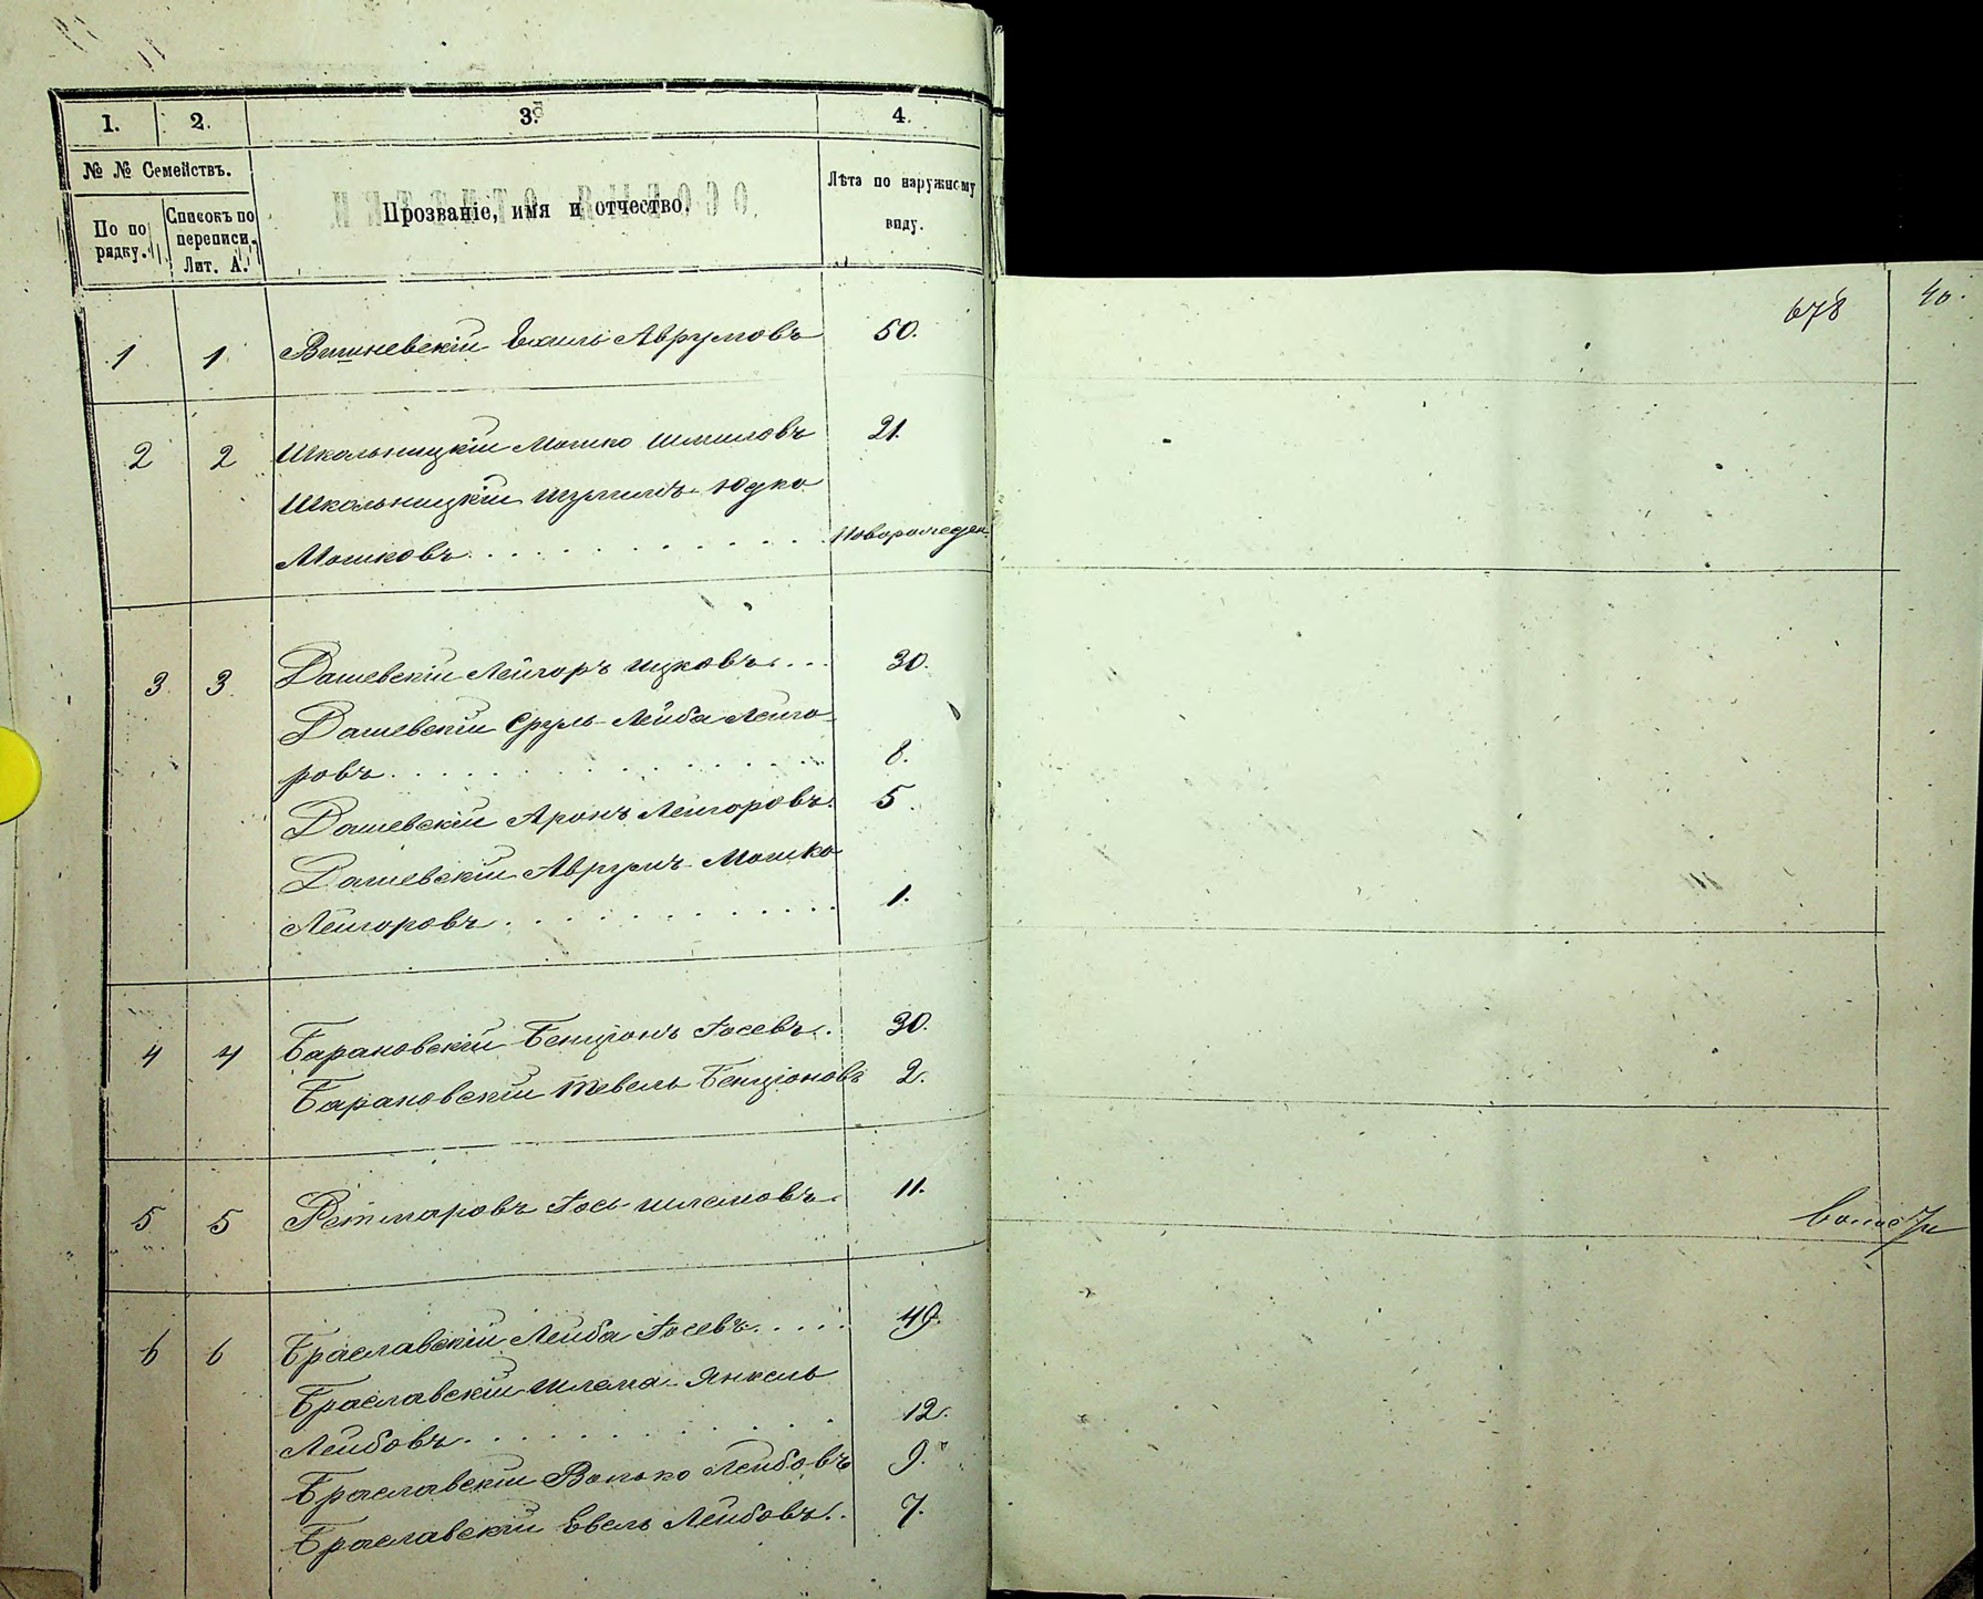 1. 2. 3. 4.
№ № Семействъ.
По по рядку.
Списокъ по переписи. Лит. А.
Прозваніе, имя и отчество.
Лѣта по наружному виду.
678
40.
1 1 Вишневскій Ехиль Аврумовъ 50.
2 2 Школьницкій Мошко Шмиловъ 21.
Школьницкій Шулимъ-Юдко
Мошковъ . . . . . . . . . . . . Новорожден.
3. 3. Дашевскій Лейзоръ Ицковъ . . . 30.
Дашевскій Сруль-Лейба Лейзо-
ровъ . . . . . . . . . . . . . . . 8.
Дашевскій Аронъ Лейзоровъ. 5.
Дашевскій Аврумъ-Мошко
Лейзоровъ . . . . . . . . . . . . 1.
4 4 Барановскій Бенціонъ Іосевъ. 30.
Барановскій Тевель Бенціоновъ 2.
5 5 Іось Шлемовъ. 11.
6 6 Браславскій Лейба Іосевъ . . . . 49.
Браславскій Шлема-Янкель
Лейбовъ . . . . . . . . . . . . 12.
Браславскій Волько Лейбовъ 9.
Браславскій Евель Лейбовъ. . 7.